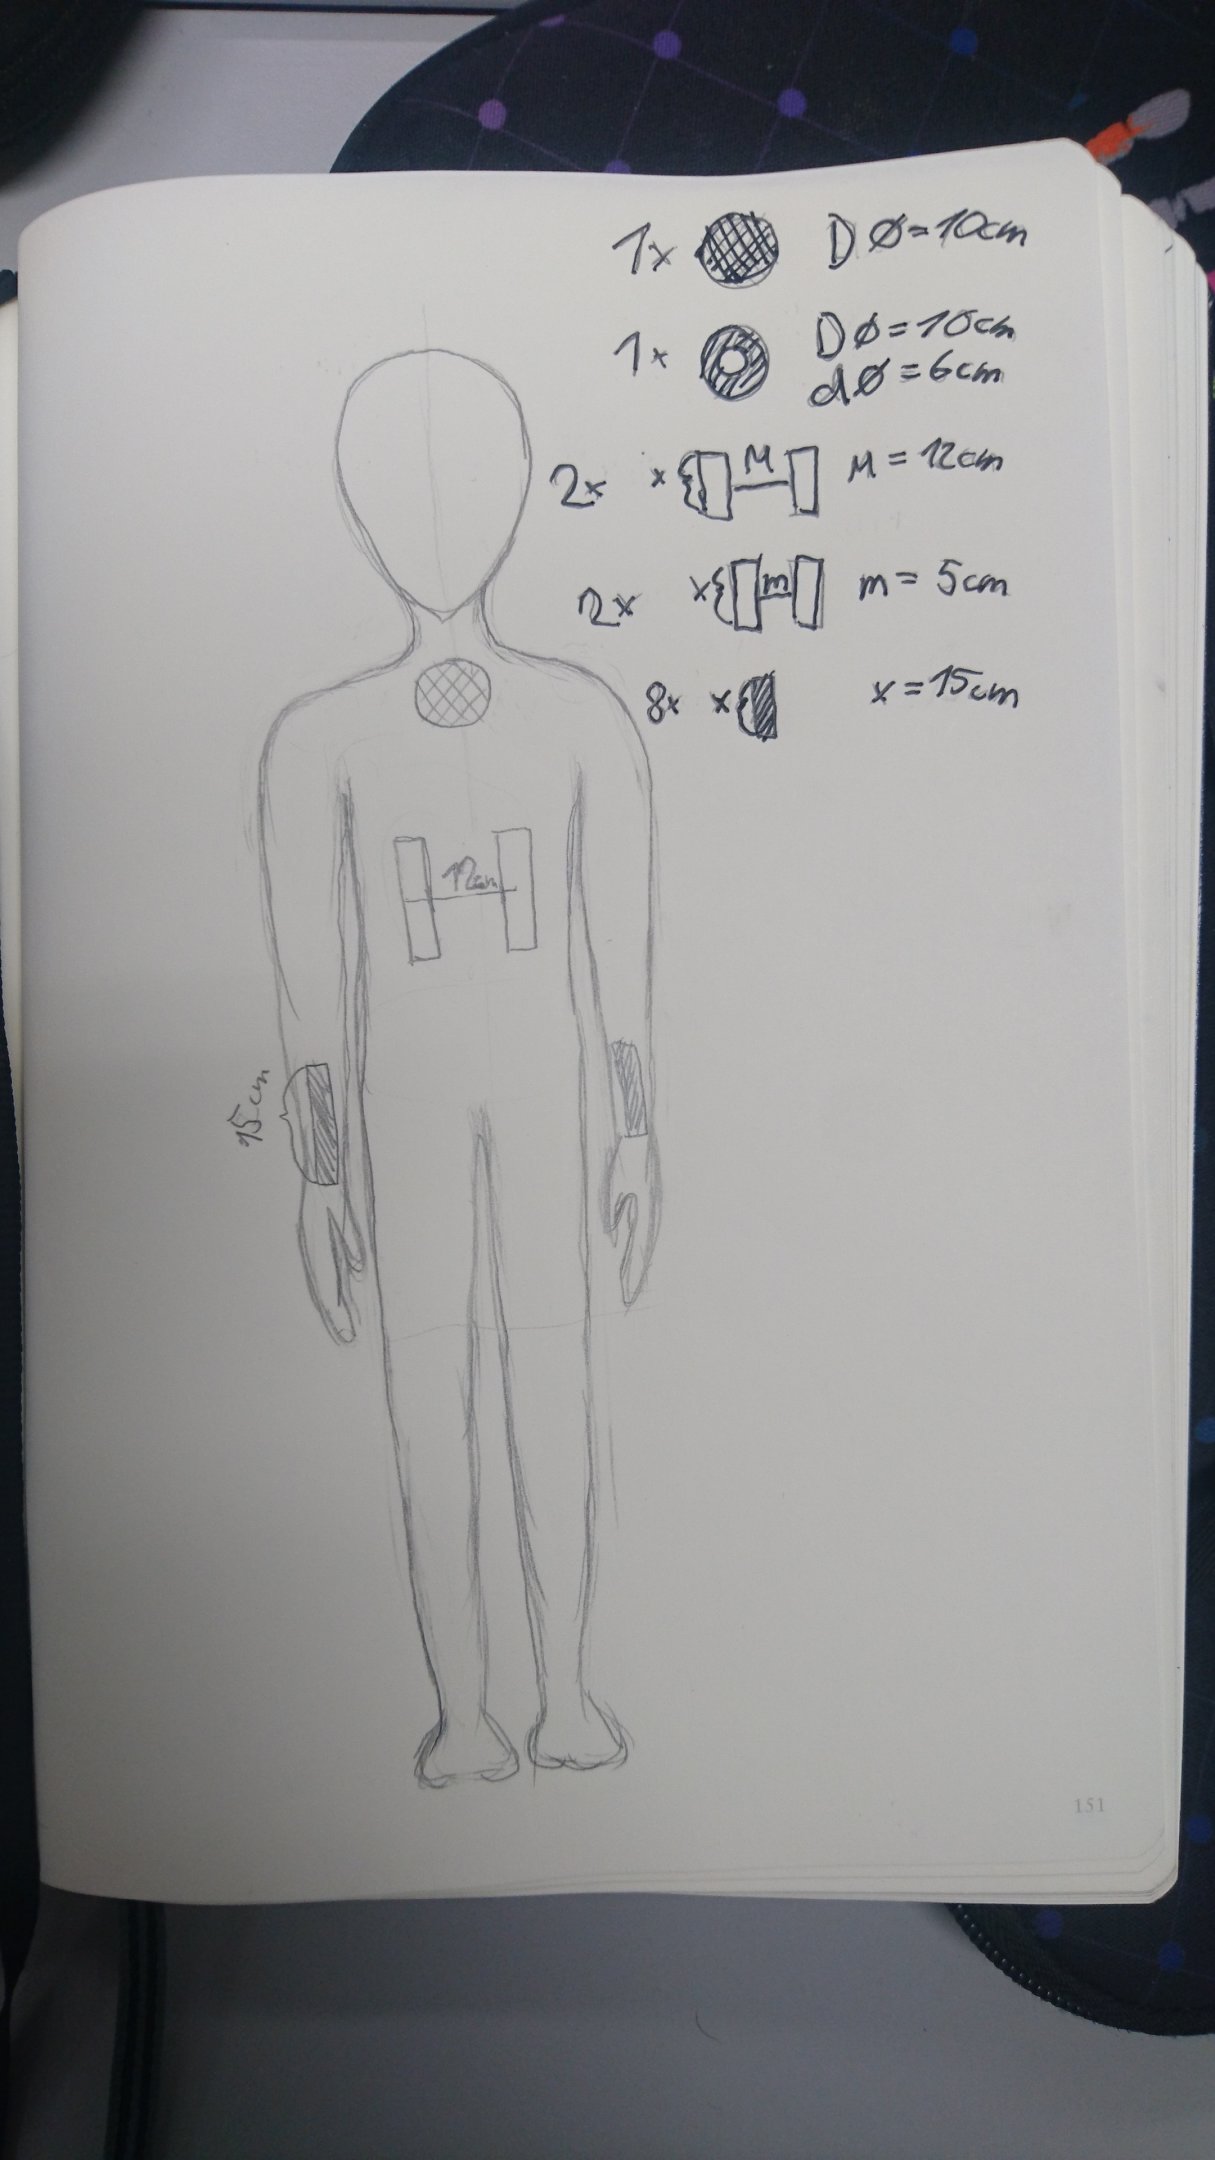 1x D ø=10cm
1x D ø=10cm
d ø=6cm
2x x M M = 12cm
2x x m m = 5cm
8x x x = 15cm
12cm
15cm
151